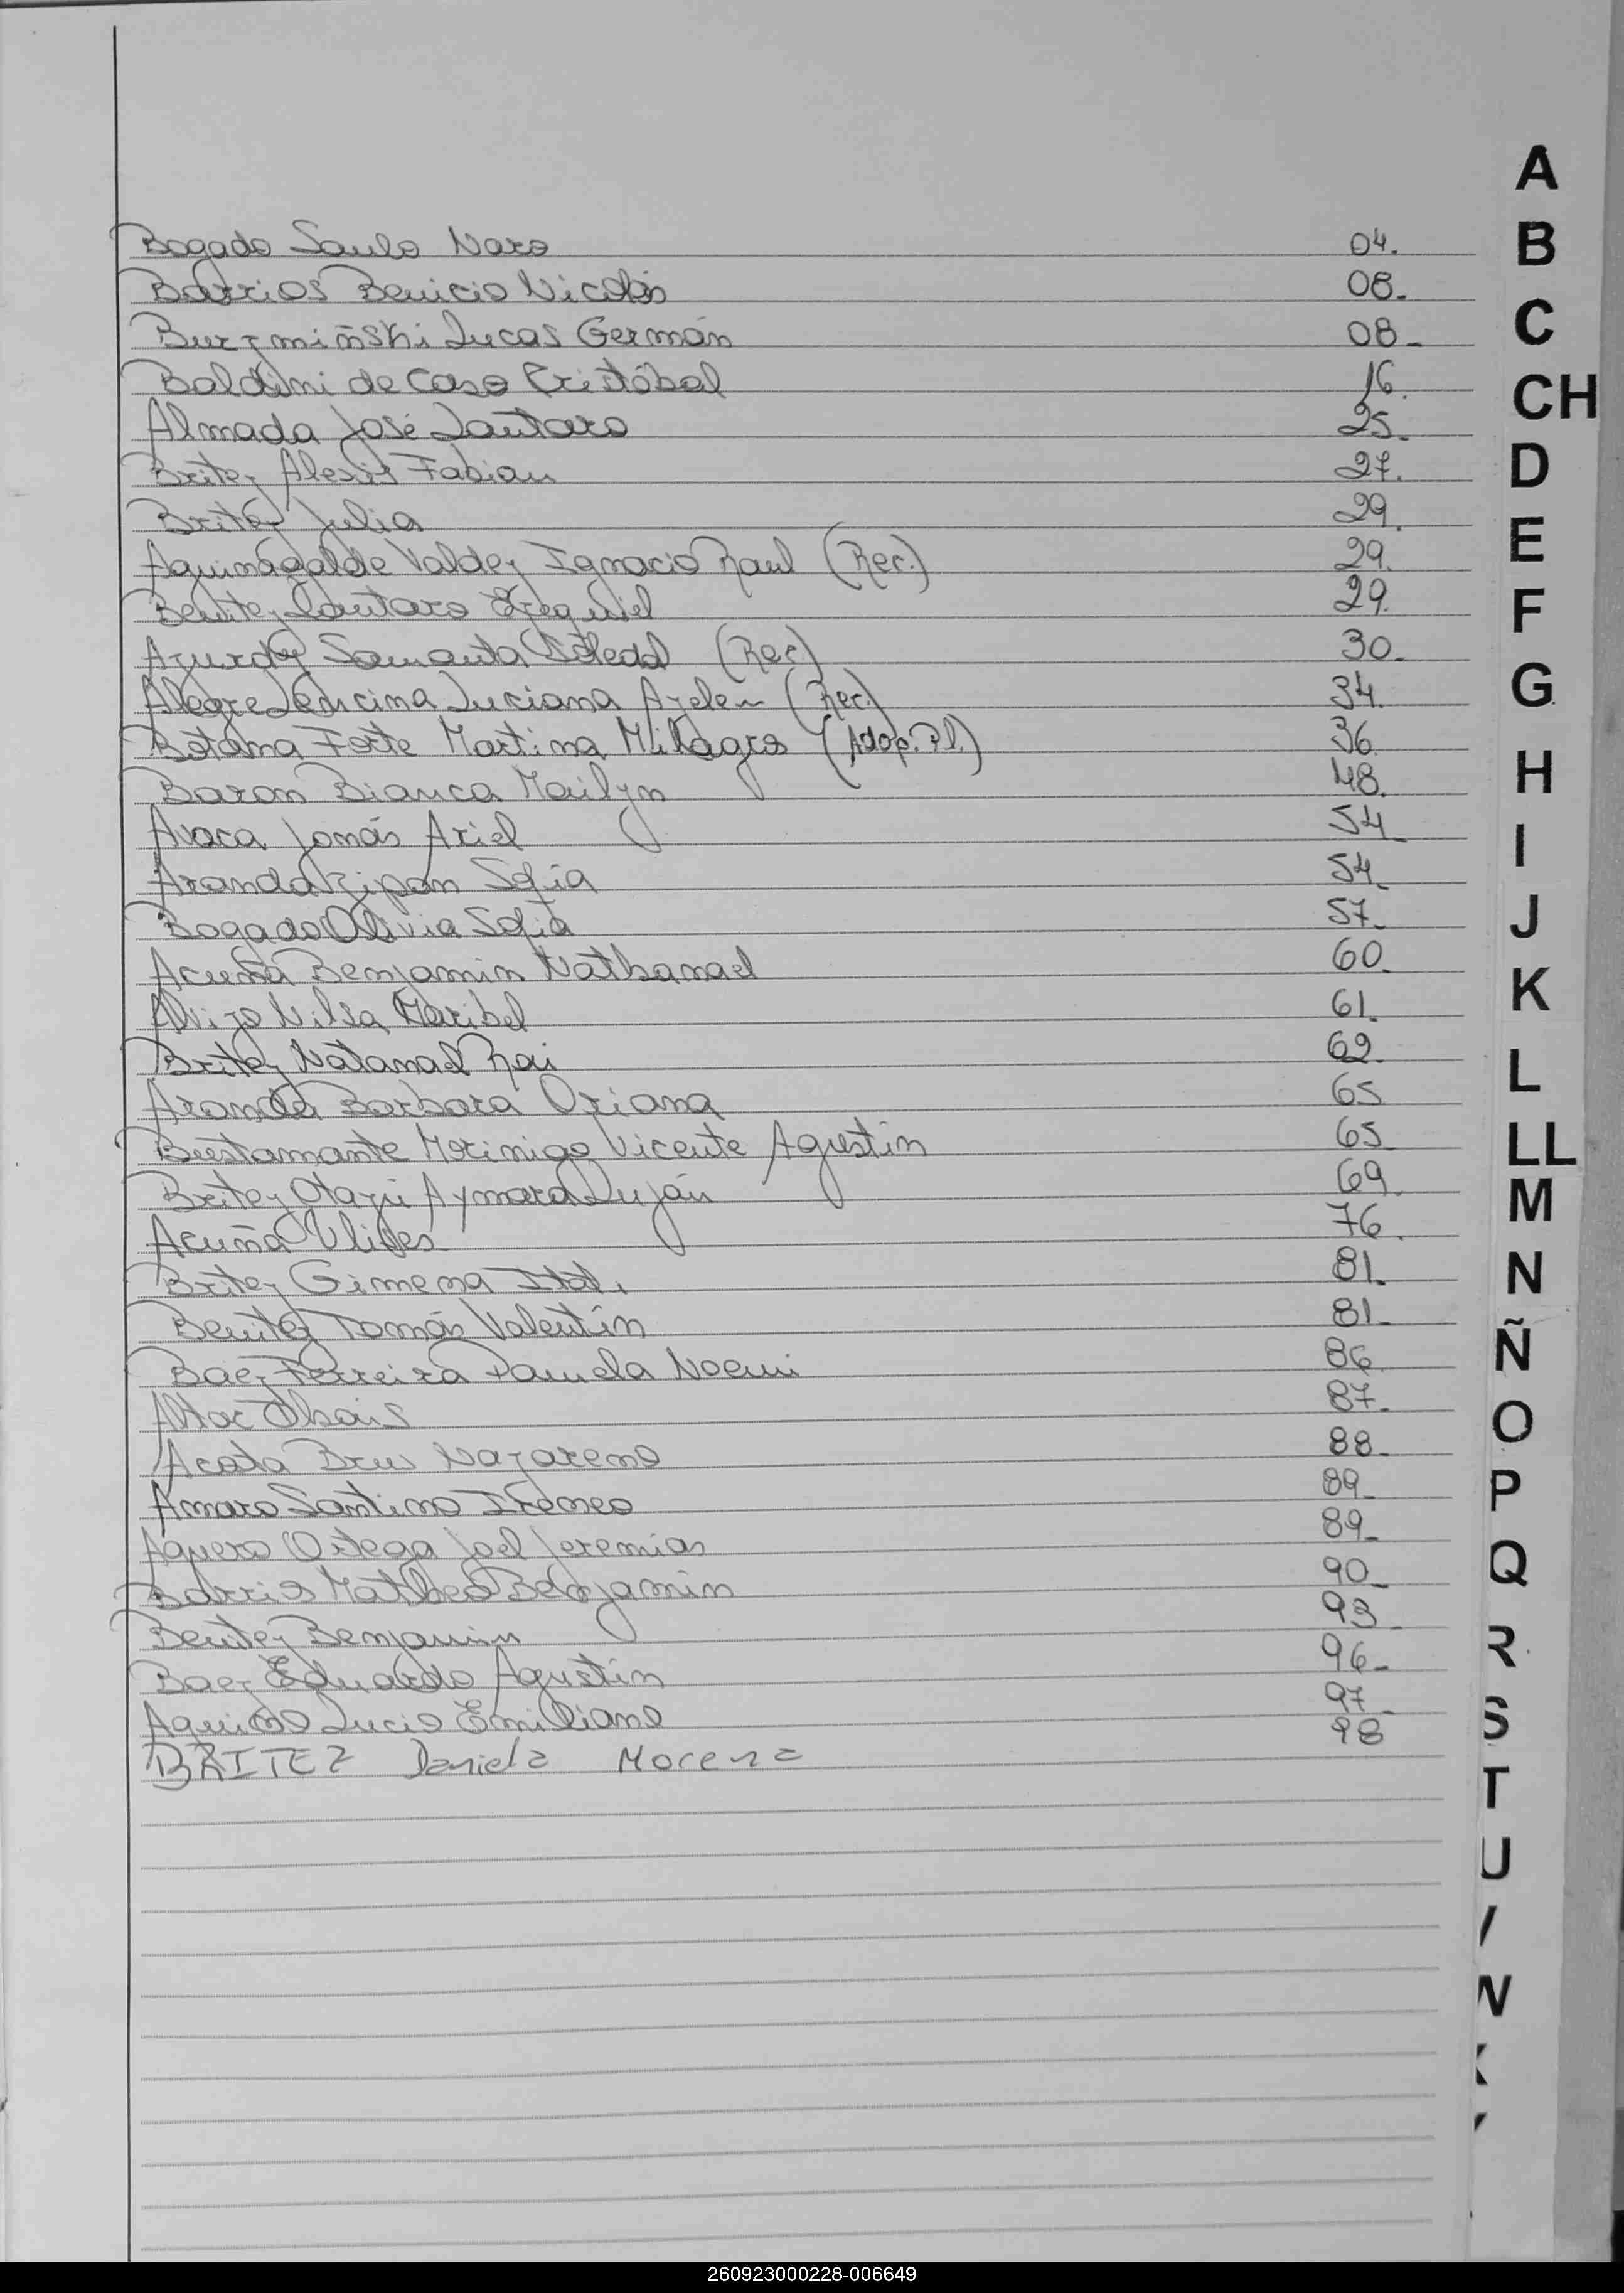 Bogado Saulo Naro 04.
Barrios Benicio Nicolás 08.
Burzmiñski Lucas Germán 08.
Baldini de Caso Cristóbal 16.
Almada José Lautaro 25.
Britez Alexis Fabian 27.
Britez Julia 29.
Aguinagalde Valdez Ignacio Raul (Rec.) 29.
Benitez Lautaro Ezequiel 29.
Azurday Samanta Soledad (Rec.) 30.
Alegre Lencina Luciana Ayelen (Rec.) 34.
Botana Forte Martina Milagros (Adop. Pl.) 36.
Baron Bianca Mailyn 48.
Avaca Jonás Ariel 54.
Aranda Zipan Sofia 54.
Bogado Olivia Sofia 57.
Acuña Benjamin Nathanael 60.
Alvizo Nilsa Maribel 61.
Britez Natanael Rai 62.
Aranda Barbara Oriana 65
Bustamante Morinigo Vicente Agustín 65
Britez Otazú Aymara Luján 69.
Acuña Ulises 76.
Britez Gimena Itatí 81.
Benitez Tomás Valentín 81.
Baez Ferreira Pamela Noemi 86.
Thais 87.
Acosta Brus Nazareno 88.
Amaro Santino Ireneo 89.
Aguero Ortega Joel Jeremias 89.
Barrios Matheo Benjamín 90.
Benitez Benjamin 93.
Baez Eduardo Agustín 96.
Aquino Lucio Emiliano 97.
BRITEZ Daniela Morena 98
A
B
C
CH
D
E
F
G
H
I
J
K
L
LL
M
N
Ñ
O
P
Q
R
S
T
U
260923000228-006649